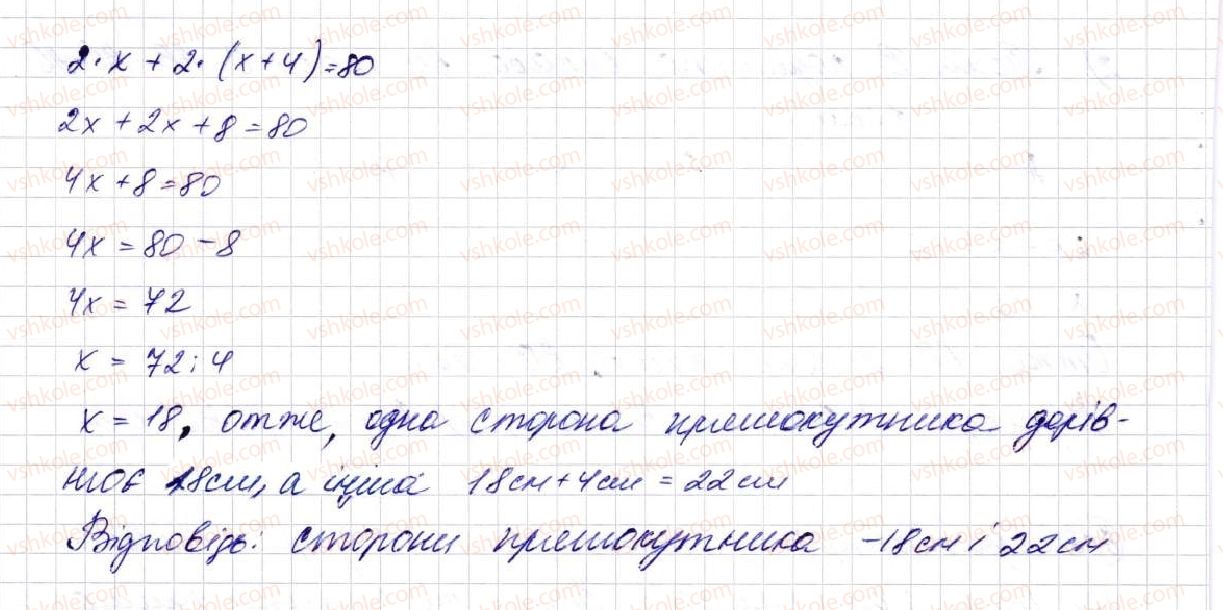 2·x + 2·(x+4)=80
2x + 2x + 8 = 80
4x + 8 = 80
4x = 80 - 8
4x = 72
x = 72:4
x = 18, отже, одна сторона прямокутника дорів-
нює 18см, а інша 18см + 4см = 22см
Відповідь: сторони прямокутника - 18см і 22см